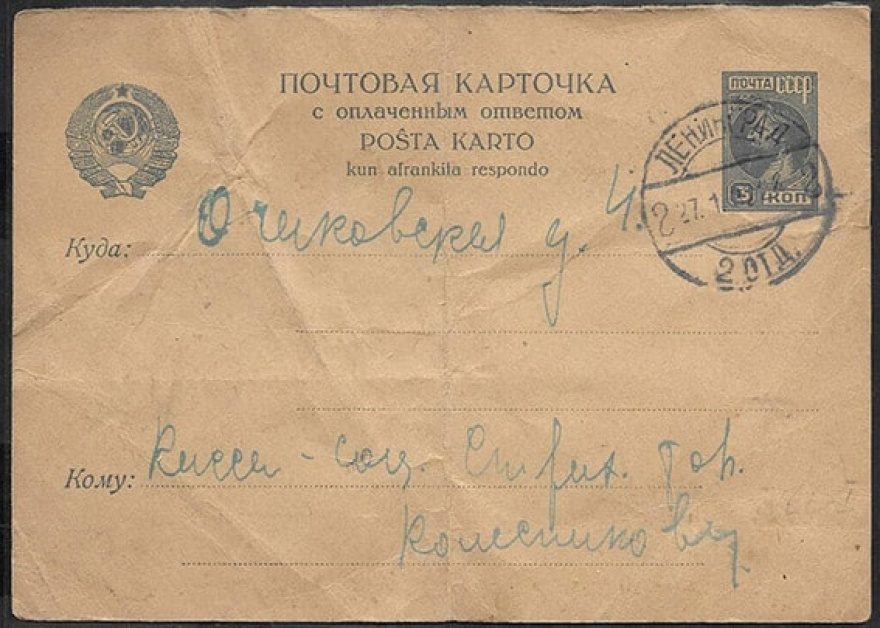 ПОЧТОВАЯ КАРТОЧКА
с оплаченным ответом
POŜTA KARTO
kun afrankita respondo
ПОЧТА СССР
КОП
ЛЕНИНГРАД
27. 1
2 ОТД.
Куда: Очаковская д. 4.
Кому: Касса соц. Страх. тов.
Колесникову